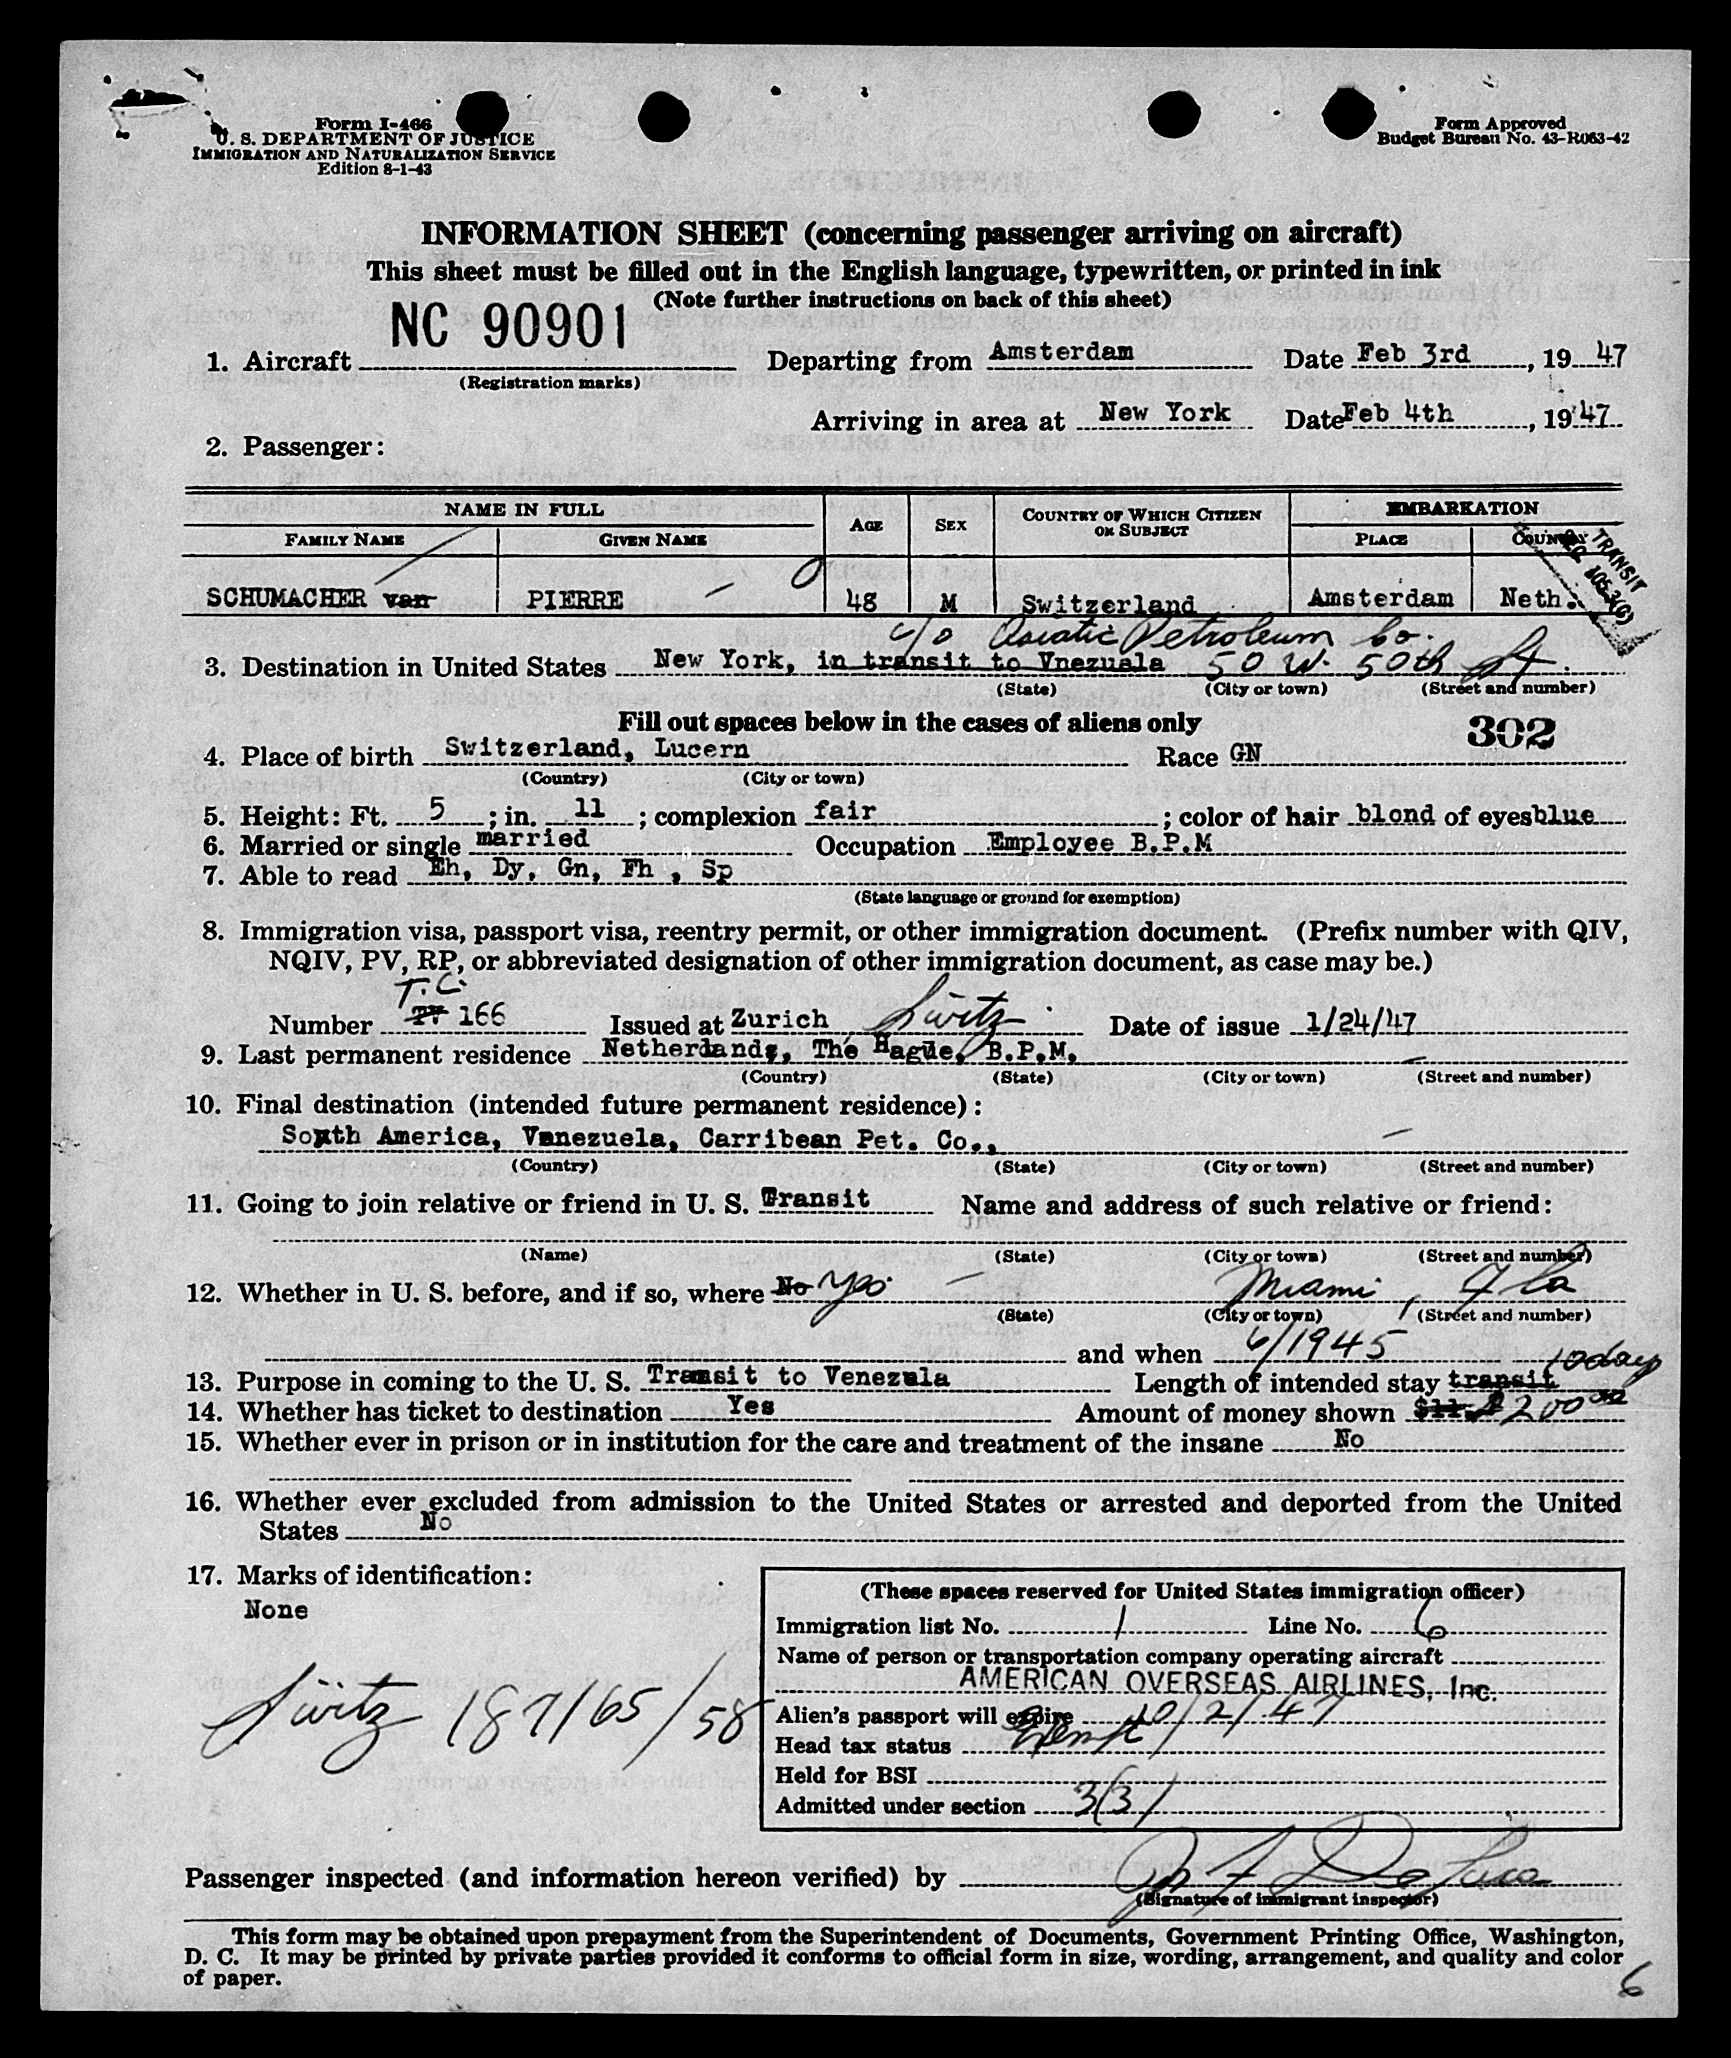 Form I-466
U. S. DEPARTMENT OF JUSTICE
IMMIGRATION AND NATURALIZATION SERVICE
Edition 8-1-43
Form Approved
Budget Bureau No. 43-R063-42
INFORMATION SHEET (concerning passenger arriving on aircraft)
This sheet must be filled out in the English language, typewritten, or printed in ink
(Note further instructions on back of this sheet)
1. Aircraft NC 90901 Departing from Amsterdam Date Feb 3rd, 19 47
(Registration marks)
Arriving in area at New York Date Feb 4th, 19 47
2. Passenger:
NAME IN FULL AGE SEX COUNTRY OF WHICH CITIZEN OR SUBJECT EMBARKATION
FAMILY NAME GIVEN NAME PLACE COUNTRY
TRANSIT
SCHUMACHER van PIERRE 48 M Switzerland Amsterdam Neth.
c/o Asiatic Petroleum Co.
3. Destination in United States New York, in transit to Vnezuala 50 W. 50th St.
(State) (City or town) (Street and number)
Fill out spaces below in the cases of aliens only 302
4. Place of birth Switzerland, Lucern Race GN
(Country) (City or town)
5. Height: Ft. 5; in. 11; complexion fair; color of hair blond of eyes blue
6. Married or single married Occupation Employee B.P.M
7. Able to read Eh, Dy, Gn, Fh , Sp
(State language or ground for exemption)
8. Immigration visa, passport visa, reentry permit, or other immigration document. (Prefix number with QIV,
NQIV, PV, RP, or abbreviated designation of other immigration document, as case may be.)
T.C.
Number 166 Issued at Zurich Switz Date of issue 1/24/47
9. Last permanent residence Netherlands, The Hague, B.P.M.
(Country) (State) (City or town) (Street and number)
10. Final destination (intended future permanent residence):
South America, Vanezuela, Carribean Pet. Co.,
(Country) (State) (City or town) (Street and number)
11. Going to join relative or friend in U. S. Transit Name and address of such relative or friend:
(Name) (State) (City or town) (Street and number)
12. Whether in U. S. before, and if so, where No Yes Miami, Fla
(State) (City or town) (Street and number)
and when 6/1945
13. Purpose in coming to the U. S. Transit to Venezula Length of intended stay transit 10 days
14. Whether has ticket to destination Yes Amount of money shown $200 00
15. Whether ever in prison or in institution for the care and treatment of the insane No
16. Whether ever excluded from admission to the United States or arrested and deported from the United
States No
17. Marks of identification:
None
Switz 187165/58
(These spaces reserved for United States immigration officer)
Immigration list No. 1 Line No. 6
Name of person or transportation company operating aircraft
AMERICAN OVERSEAS AIRLINES, Inc.
Alien's passport will expire 10/2/47
Head tax status Exempt
Held for BSI
Admitted under section 3(3)
Passenger inspected (and information hereon verified) by
(Signature of immigrant inspector)
This form may be obtained upon prepayment from the Superintendent of Documents, Government Printing Office, Washington,
D. C. It may be printed by private parties provided it conforms to official form in size, wording, arrangement, and quality and color
of paper.
6